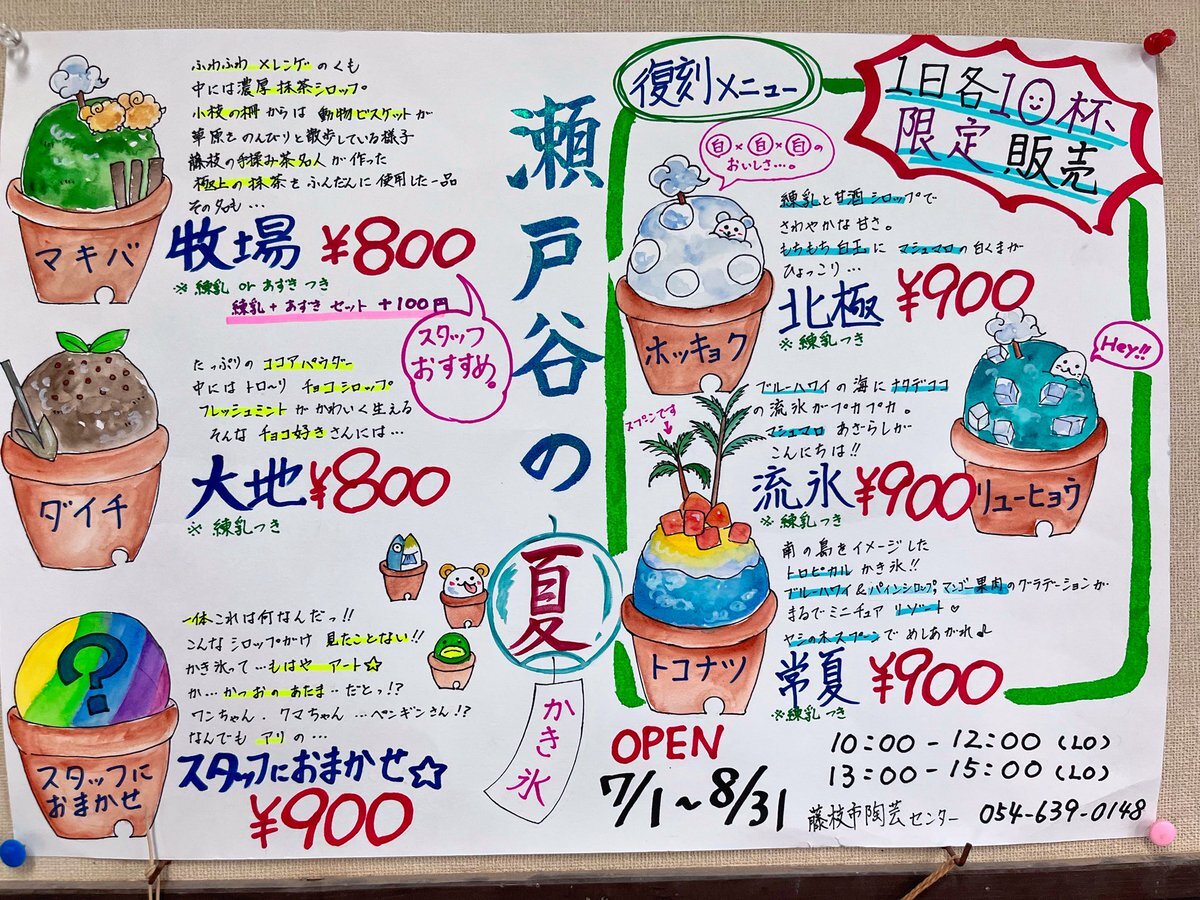 瀬戸谷の
夏
かき氷
ふわふわメレンゲのくも
中には濃厚抹茶シロップ
小枝の柵からは動物ビスケットが
草原をのんびりと散歩している様子
藤枝の手揉み茶名人が作った
極上の抹茶をふんだんに使用した一品
その名も…
マキバ
牧場 ¥800
※練乳 or あずき つき
練乳+あずき セット +100円
スタッフ
おすすめ。
たっぷりの ココアパウダー
中には トロ〜リ チョコシロップ
フレッシュミントが かわいく生える
そんな チョコ好きさんには…
ダイチ
大地 ¥800
※練乳つき
一体これは何なんだっ!!
こんなシロップかけ 見たことない!!
かき氷って…もはや アート☆
か…かつおのあたま…だとっ!?
ワンちゃん.クマちゃん…ペンギンさん!?
なんでも アリの…
スタッフに
おまかせ
スタッフにおまかせ☆
¥900
復刻メニュー
1日各10杯、
限定販売
白×白×白の
おいしさ…。
練乳と甘酒シロップで
さわやかな甘さ。
もちもち白玉に マシュマロの白くまが
ひょっこり…
ホッキョク
北極 ¥900
※練乳つき
Hey!!
ブルーハワイの海にナタデココ
の流氷がプカプカ。
マシュマロ あざらしが
こんにちは!!
流氷 ¥900
リューヒョウ
※練乳つき
スプーンです
南の島をイメージした
トロピカル かき氷!!
ブルーハワイ&パインシロップ,マンゴー果肉のグラデーションが
まるでミニチュア リゾート♡
ヤシの木スプーンで めしあがれ♪
トコナツ
常夏 ¥900
※練乳つき
OPEN
7/1〜8/31
10:00-12:00(LO)
13:00-15:00(LO)
藤枝市陶芸センター 054-639-0148